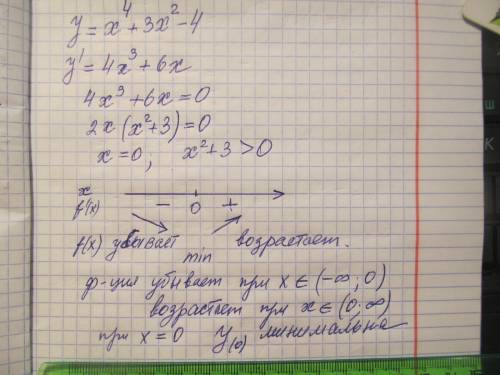 y = x⁴ + 3x² - 4
y' = 4x³ + 6x
4x³ + 6x = 0
2x (x² + 3) = 0
x = 0; x² + 3 > 0
x
f'(x) - 0 +
f(x) убывает min возрастает.
ф-ция убывает при x ∈ (-∞; 0)
возрастает при x ∈ (0; ∞)
при x = 0 y(0) минимальна